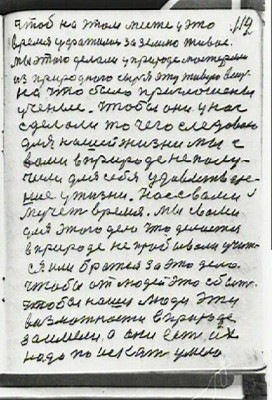 чтоб на этом месте у это 112
время ухватили за землю живое.
мы этого делали у природе материал
из природного сырья эту живую
на что было приложение
учение. чтобы они у нас
сделали то чего следовало
для нашей жизни мы с
вами в природе не полу-
чили для себя удовлетворе-
ние у жизни. нас с вами
мучет время. мы с вами
для этого дело что делается
в природе не пробывали учит-
ся или братся за это дело.
чтобы от людей это сбыт
чтобы наши люди эту
возможности в природе
заимели, а они есть, их
надо поискать умело